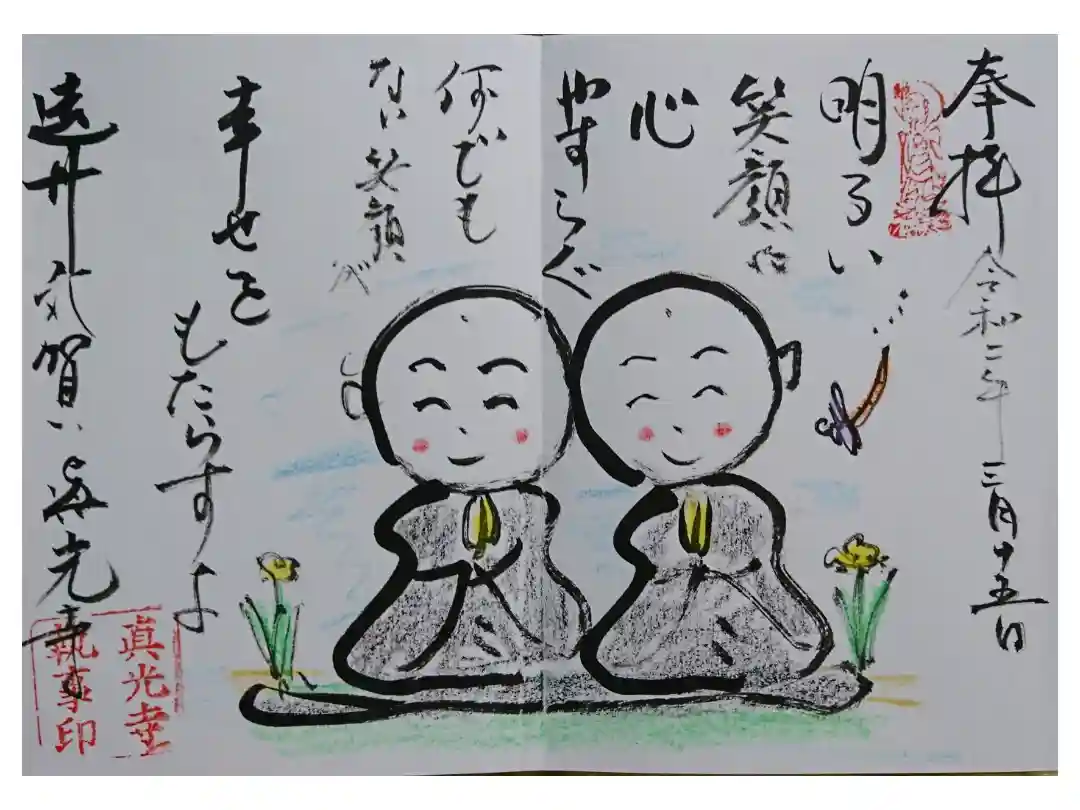 奉拝
令和二年三月十五日
明るい
笑顔に
心
やすらぐ
何でも
ない笑顔が
幸せを
もたらすよ
遠州気賀 真光寺
眞光寺
執事印